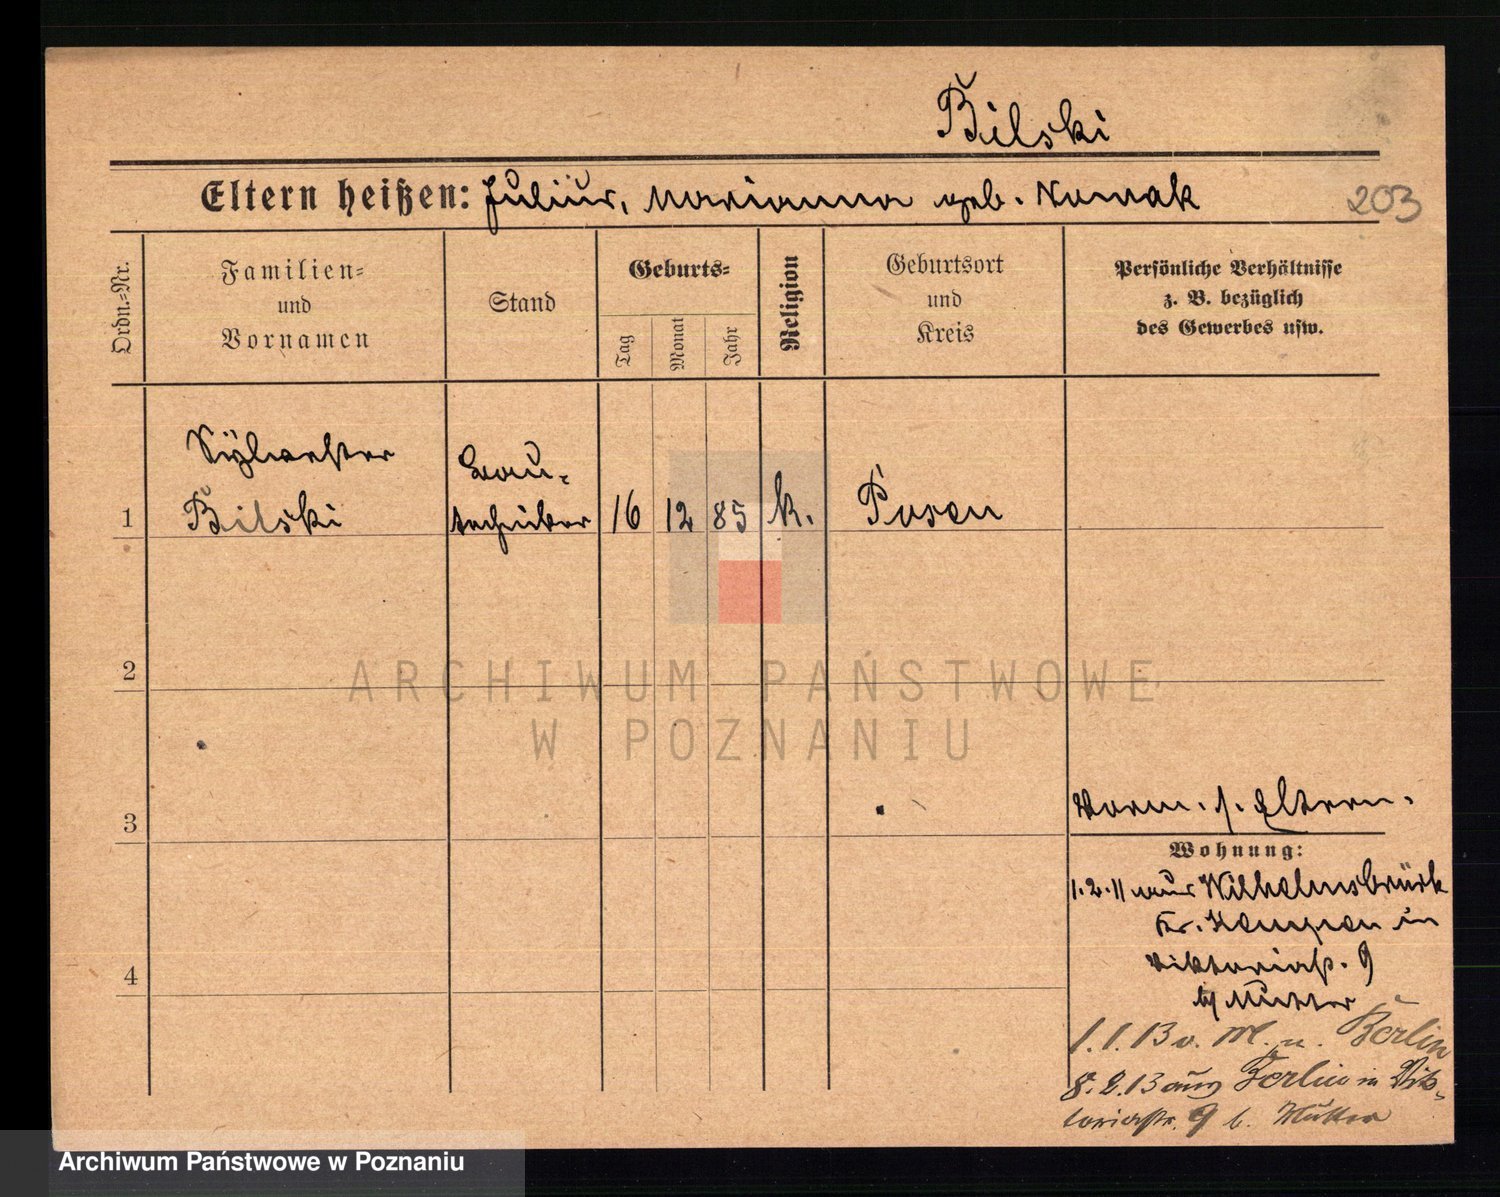 Bilski
Eltern heißen: Julius, Marianna geb. Nowak
203
Ordn.-Nr.
Familien-
und
Vornamen
Stand
Geburts-
Tag
Monat
Jahr
Religion
Geburtsort
und
Kreis
Persönliche Verhältnisse
z. B. bezüglich
des Gewerbes usw.
Sylvester
Bilski
Bau-
techniker
1
16
12
85
k.
Posen
2
3
4
Vorm. s. Eltern.
Wohnung:
1.2.11 aus Wilhelmsbrück
Kr. Kempen in
Viktoriastr. 9
bei Mutter
1.1.13 v. M. n. Berlin
8.2.13 aus Berlin in Vik-
toriastr. 9 b. Mutter
ARCHIWUM PAŃSTWOWE
W POZNANIU
Archiwum Państwowe w Poznaniu